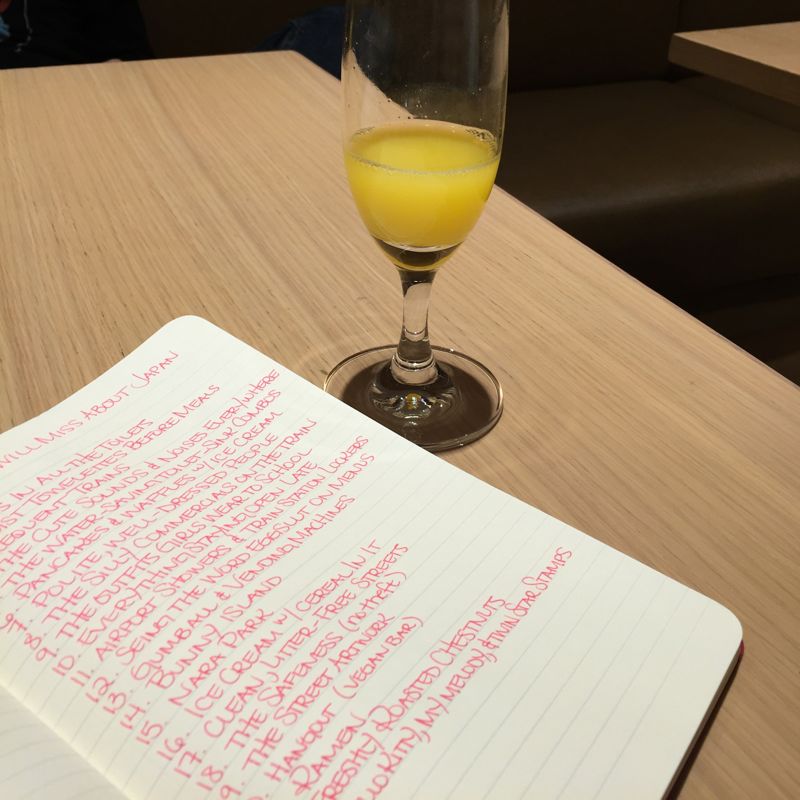 WILL MISS ABOUT JAPAN
S IN ALL THE TOILETS
IST TOWELETTES BEFORE MEALS
EQUENT TRAINS
THE CUTE SOUNDS & NOISES EVERYWHERE
THE WATER-SAVING TOILET-SINK COMBOS
PANCAKES & WAFFLES W/ ICE CREAM
7. POLITE, WELL-DRESSED PEOPLE
8. THE SILLY COMMERCIALS ON THE TRAIN
9. THE OUTFITS GIRLS WEAR TO SCHOOL
10. EVERYTHING STAYING OPEN LATE
11. AIRPORT SHOWERS & TRAIN STATION LOCKERS
12. SEING THE WORD EGGSLUT ON MENUS
13. GUMBALL & VENDING MACHINES
14. BUNNY ISLAND
15. NARA PARK
16. ICE CREAM W/ CEREAL IN IT
17. CLEAN, LITTER-FREE STREETS
18. THE SAFENESS (NO THEFT)
9. THE STREET ARTWORK
. HANGOUT (VEGAN BAR)
RAMEN
FRESHLY ROASTED CHESTNUTS
LO KITTY, MY MELODY, & TWIN STAR STAMPS